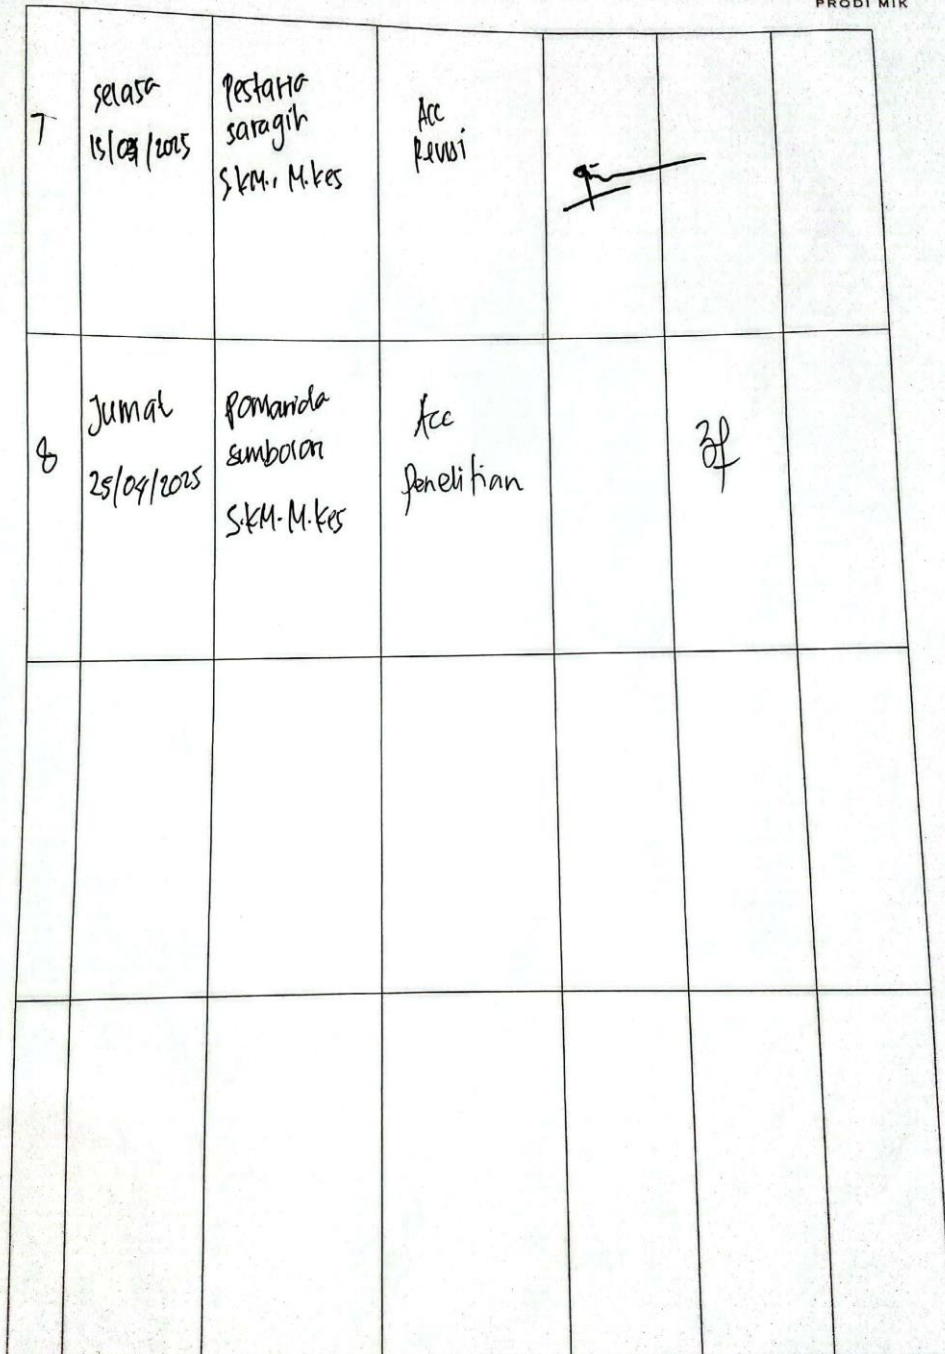 PRODI MIK
7
selasa
15/04/2025
Pestaria
saragih
S.KM., M.Kes
Acc
Revisi
8
Jumat
25/04/2025
Pomarida
simbolon
S.KM. M.Kes
Acc
Penelitian